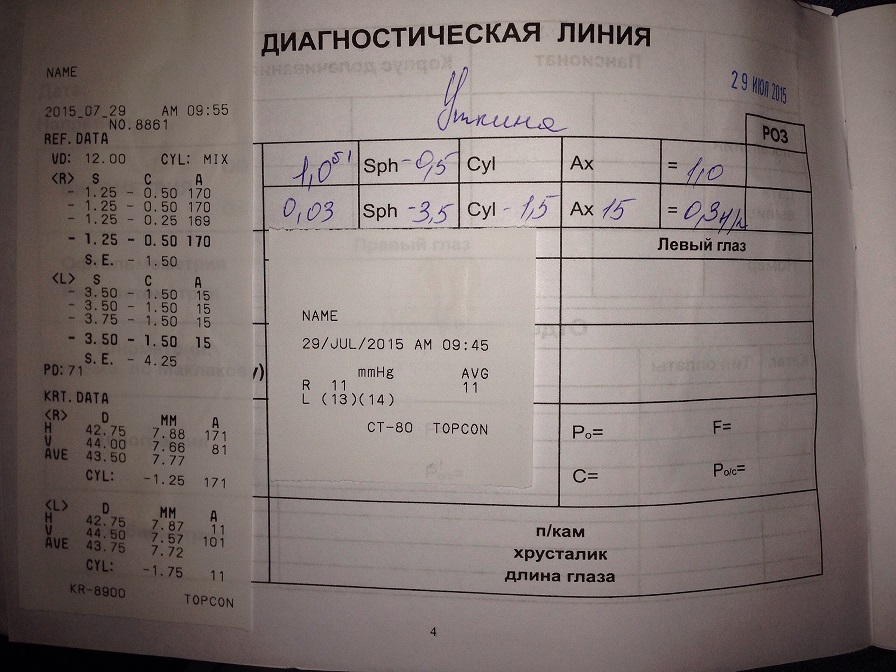 ДИАГНОСТИЧЕСКАЯ ЛИНИЯ
29 ИЮЛ 2015
Уткина
РОЗ
1,0 Sph -0,5 Cyl Ax = 1,0
0,03 Sph -3,5 Cyl -1,5 Ax 15 = 0,3 н/к
Левый глаз
NAME
2015_07_29 AM 09:55
NO.8861
REF.DATA
VD: 12.00 CYL: MIX
<R> S C A
- 1.25 - 0.50 170
- 1.25 - 0.50 170
- 1.25 - 0.25 169
- 1.25 - 0.50 170
S.E. - 1.50
<L> S C A
- 3.50 - 1.50 15
- 3.50 - 1.50 15
- 3.75 - 1.50 15
- 3.50 - 1.50 15
S.E. - 4.25
PD:71
KRT.DATA
<R> D MM A
H 42.75 7.88 171
V 44.00 7.66 81
AVE 43.50 7.77
CYL: -1.25 171
<L> D MM A
H 42.75 7.87 11
V 44.50 7.57 101
AVE 43.75 7.72
CYL: -1.75 11
KR-8900 TOPCON
NAME
29/JUL/2015 AM 09:45
mmHg AVG
R 11 11
L (13)(14)
CT-80 TOPCON
Po= F=
C= Po/c=
п/кам
хрусталик
длина глаза
4